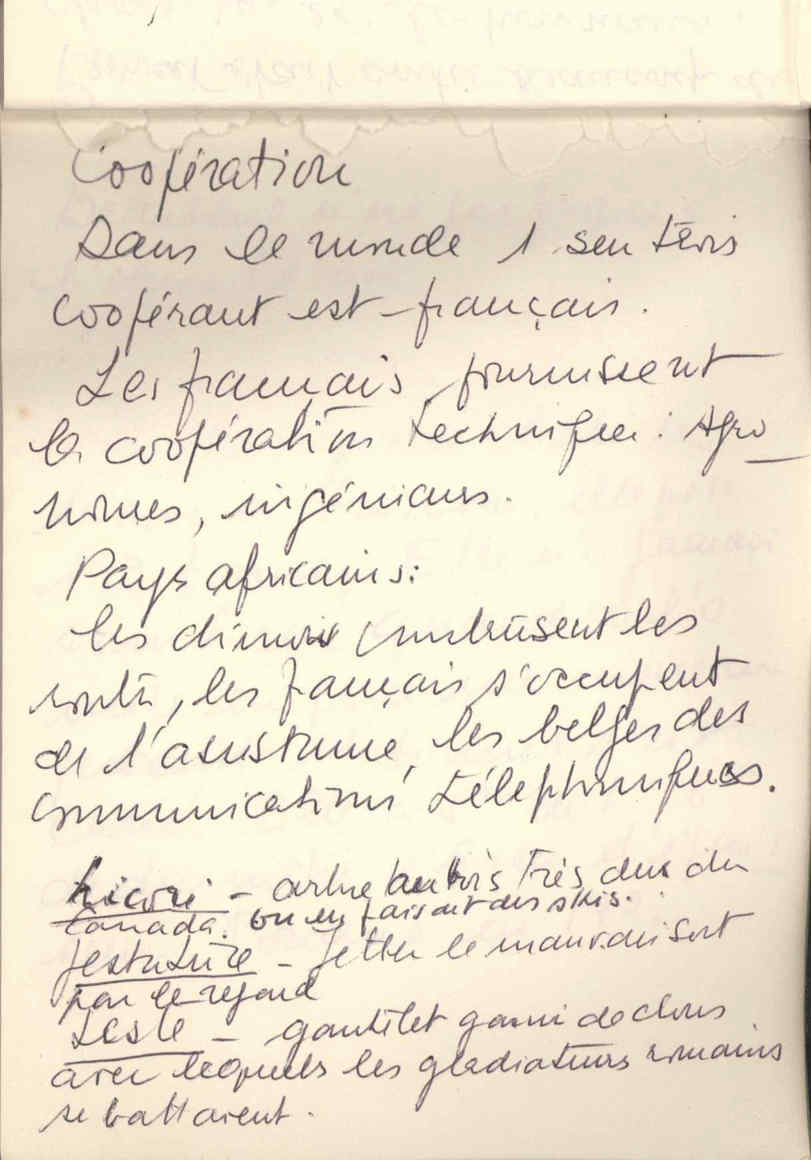 Coopération
Dans le monde 1 sur trois
coopérant est français.
Les français fournissent
la coopération technique : Agro
nomes, ingénieurs.
Pays africains :
les chinois construisent les
routes, les français s'occupent
de l'assistance, les belges des
communications téléphoniques.
hicori - arbre au bois très dur du
Canada. on en faisait des skis.
jettature - jetter le mauvais sort
par le regard
ceste - gantelet garni de clous
avec lequels les gladiateurs romains
se battaient.